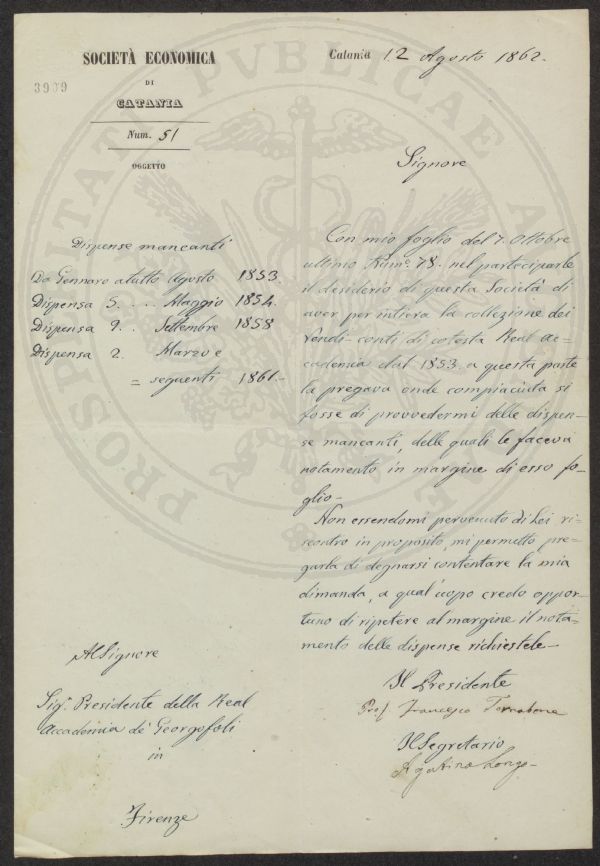 SOCIETÀ ECONOMICA
DI
CATANIA
Num. 51
OGGETTO
3909
Catania 12 Agosto 1862.
Signore
Dispense mancanti
Da Gennaro a tutto Agosto 1853.
Dispensa 5. . . . Maggio 1854.
Dispensa 9. . Settembre 1858
Dispensa 2. Marzo e
= seguenti 1861.-
Con mio foglio del 7. Ottobre
ultimo Num.º 78. nel parteciparle
il desiderio di questa Società di
aver per intiera la collezione dei
Rendi-conti di cotesta Real Ac=
cademia dal 1853. a questa parte
la pregava onde compiaciuta si
fosse di provvedermi delle dispen-
se mancanti, delle quali le faceva
notamento in margine di esso fo-
glio-
Non essendomi pervenuto di Lei ri=
scontro in proposito, mi permetto pre=
garla di degnarsi contentare la mia
dimanda, a qual'uopo credo oppor=
tuno di ripetere al margine il nota=
mento delle dispense richiestele-
Al Signore
Sig.r Presidente della Real
Accademia de' Georgofoli
in
Firenze
Il Presidente
Prof. Francesco Tornabene
Il Segretario
Agatino Longo-
PROSPERITATI PVBLICAE A